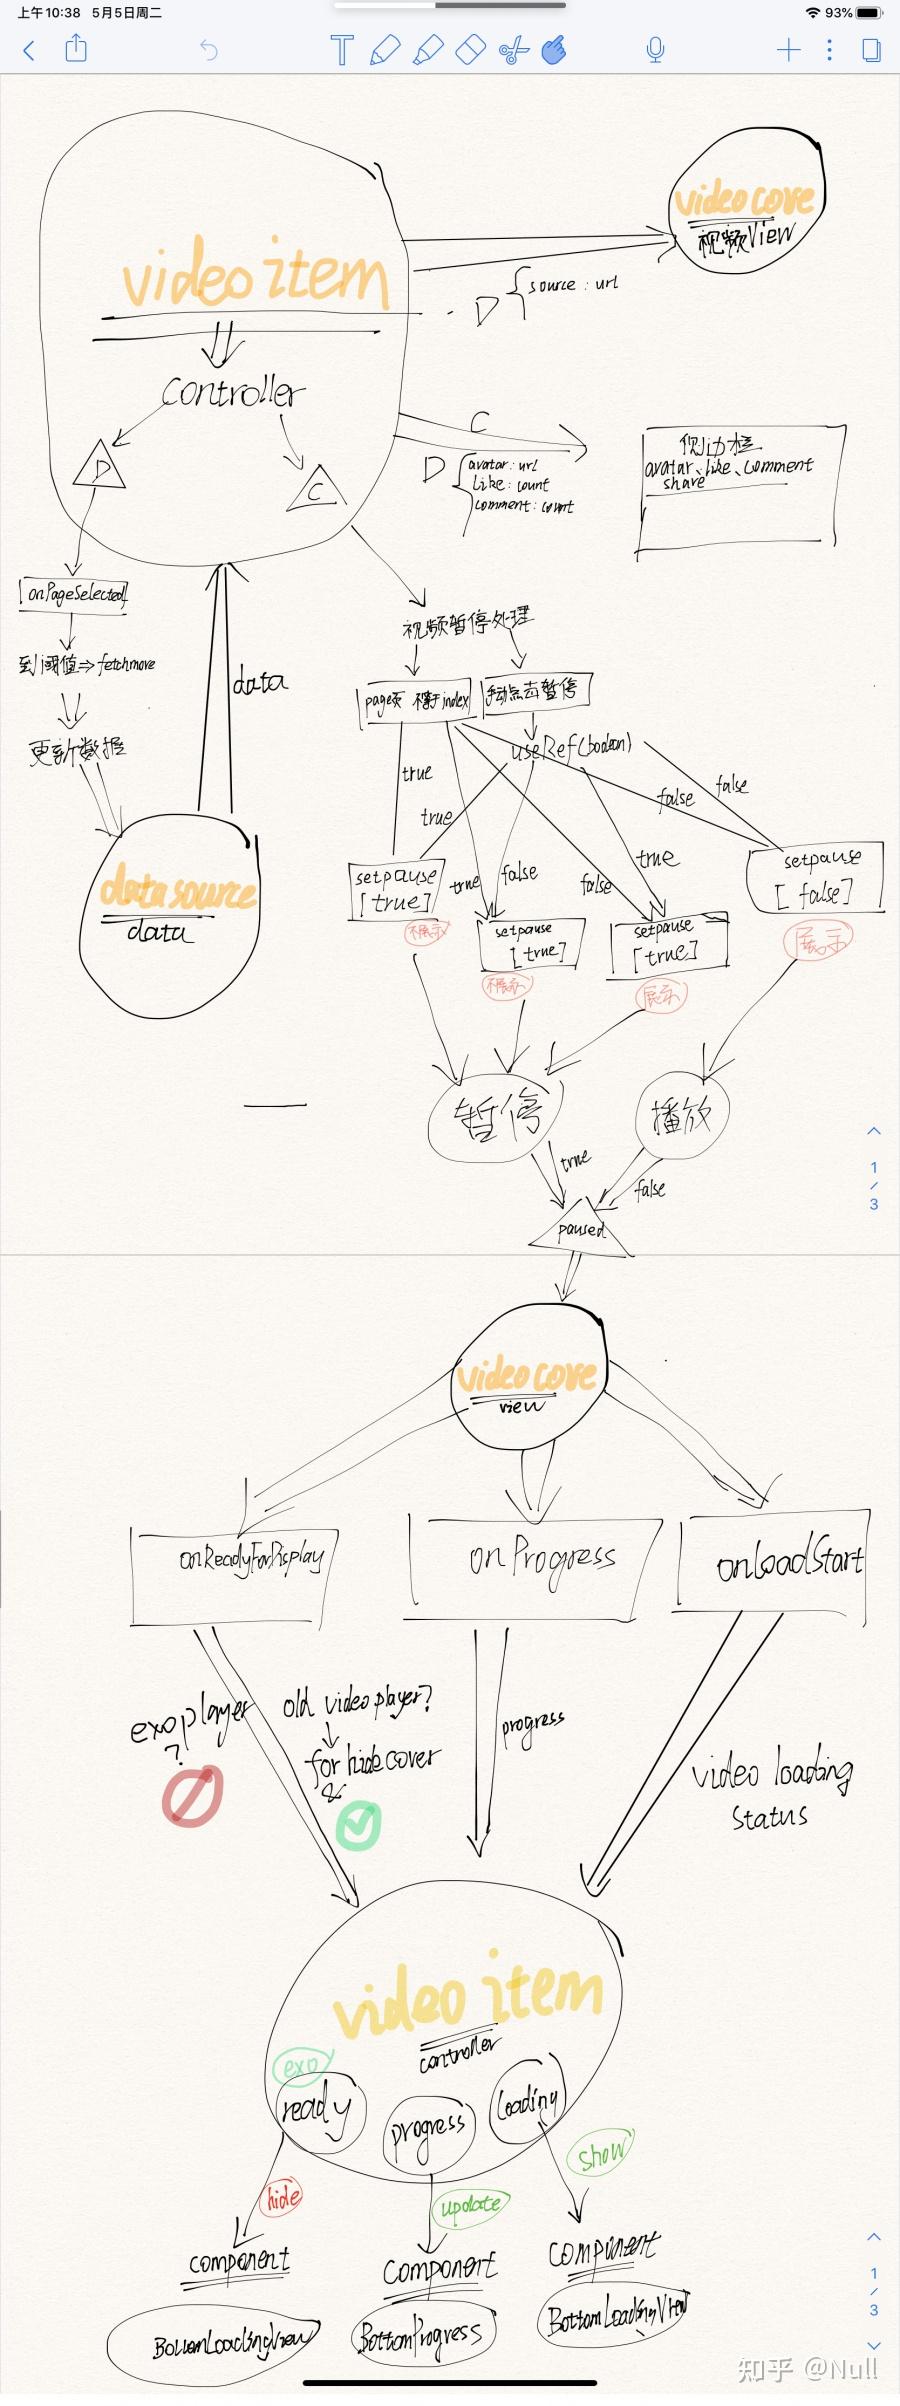 上午10:38 5月5日周二
93%
video core
视频View
video item
D
source : url
Controller
D
C
C
D
avatar : url
like : count
comment : count
侧边栏
avatar、like、comment
share
onPageSelected
到阈值⇒fetchmove
更新数据
data
data source
data
视频暂停处理
page页 不等于index
手动点击暂停
useRef(boolean)
true
true
true
false
false
true
false
false
setpause
[true]
不展示
setpause
[true]
不展示
setpause
[true]
展示
setpause
[false]
展示
暂停
播放
true
false
paused
1
/
3
video core
view
onReadyForDisplay
onProgress
onLoadStart
exoplayer
?
old videoplayer?
for hide cover
&
progress
video loading
status
video item
controller
exo
ready
progress
loading
hide
update
show
component
component
component
BottomLoadingView
BottomProgress
BottomLoadingView
1
/
3
知乎 @Null